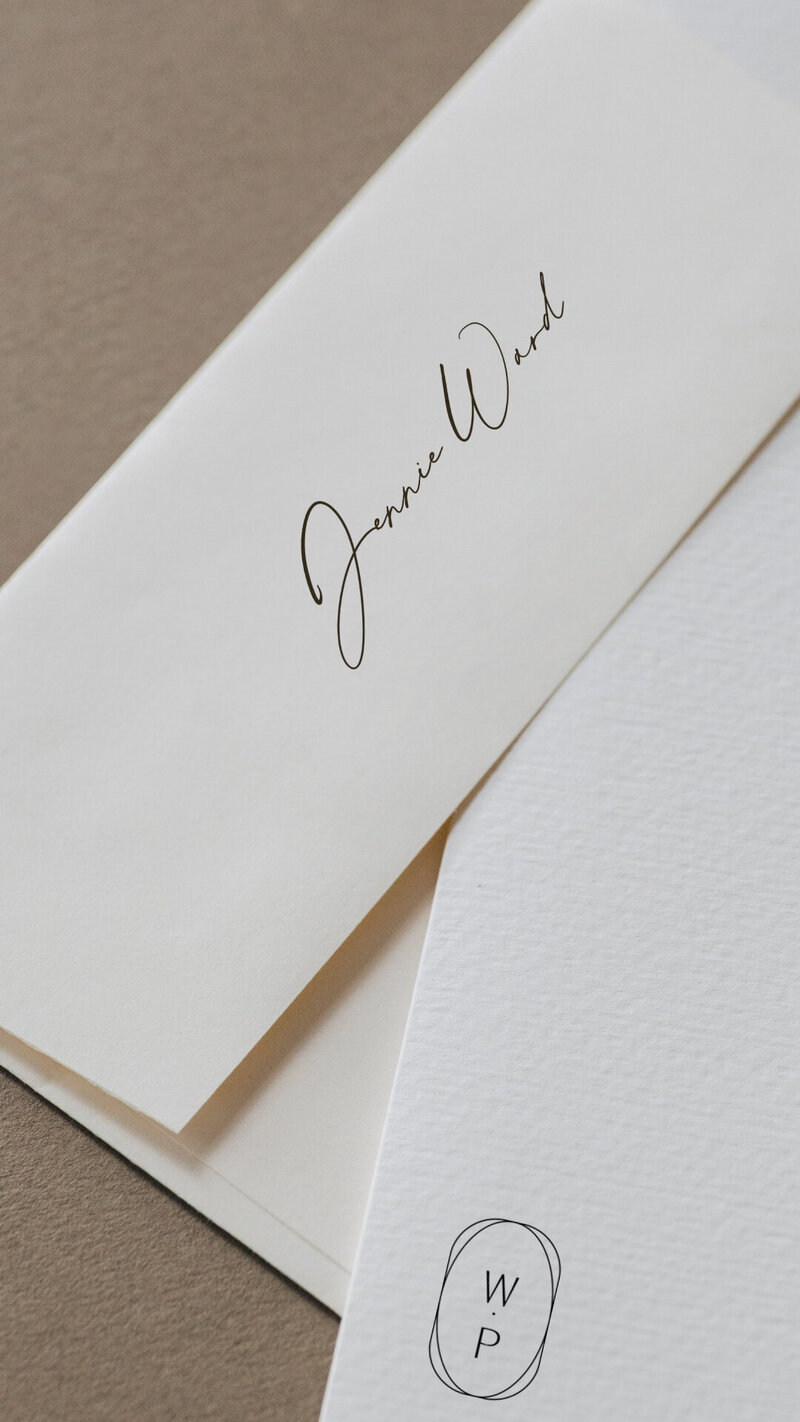 Jennie Ward
W
·
P